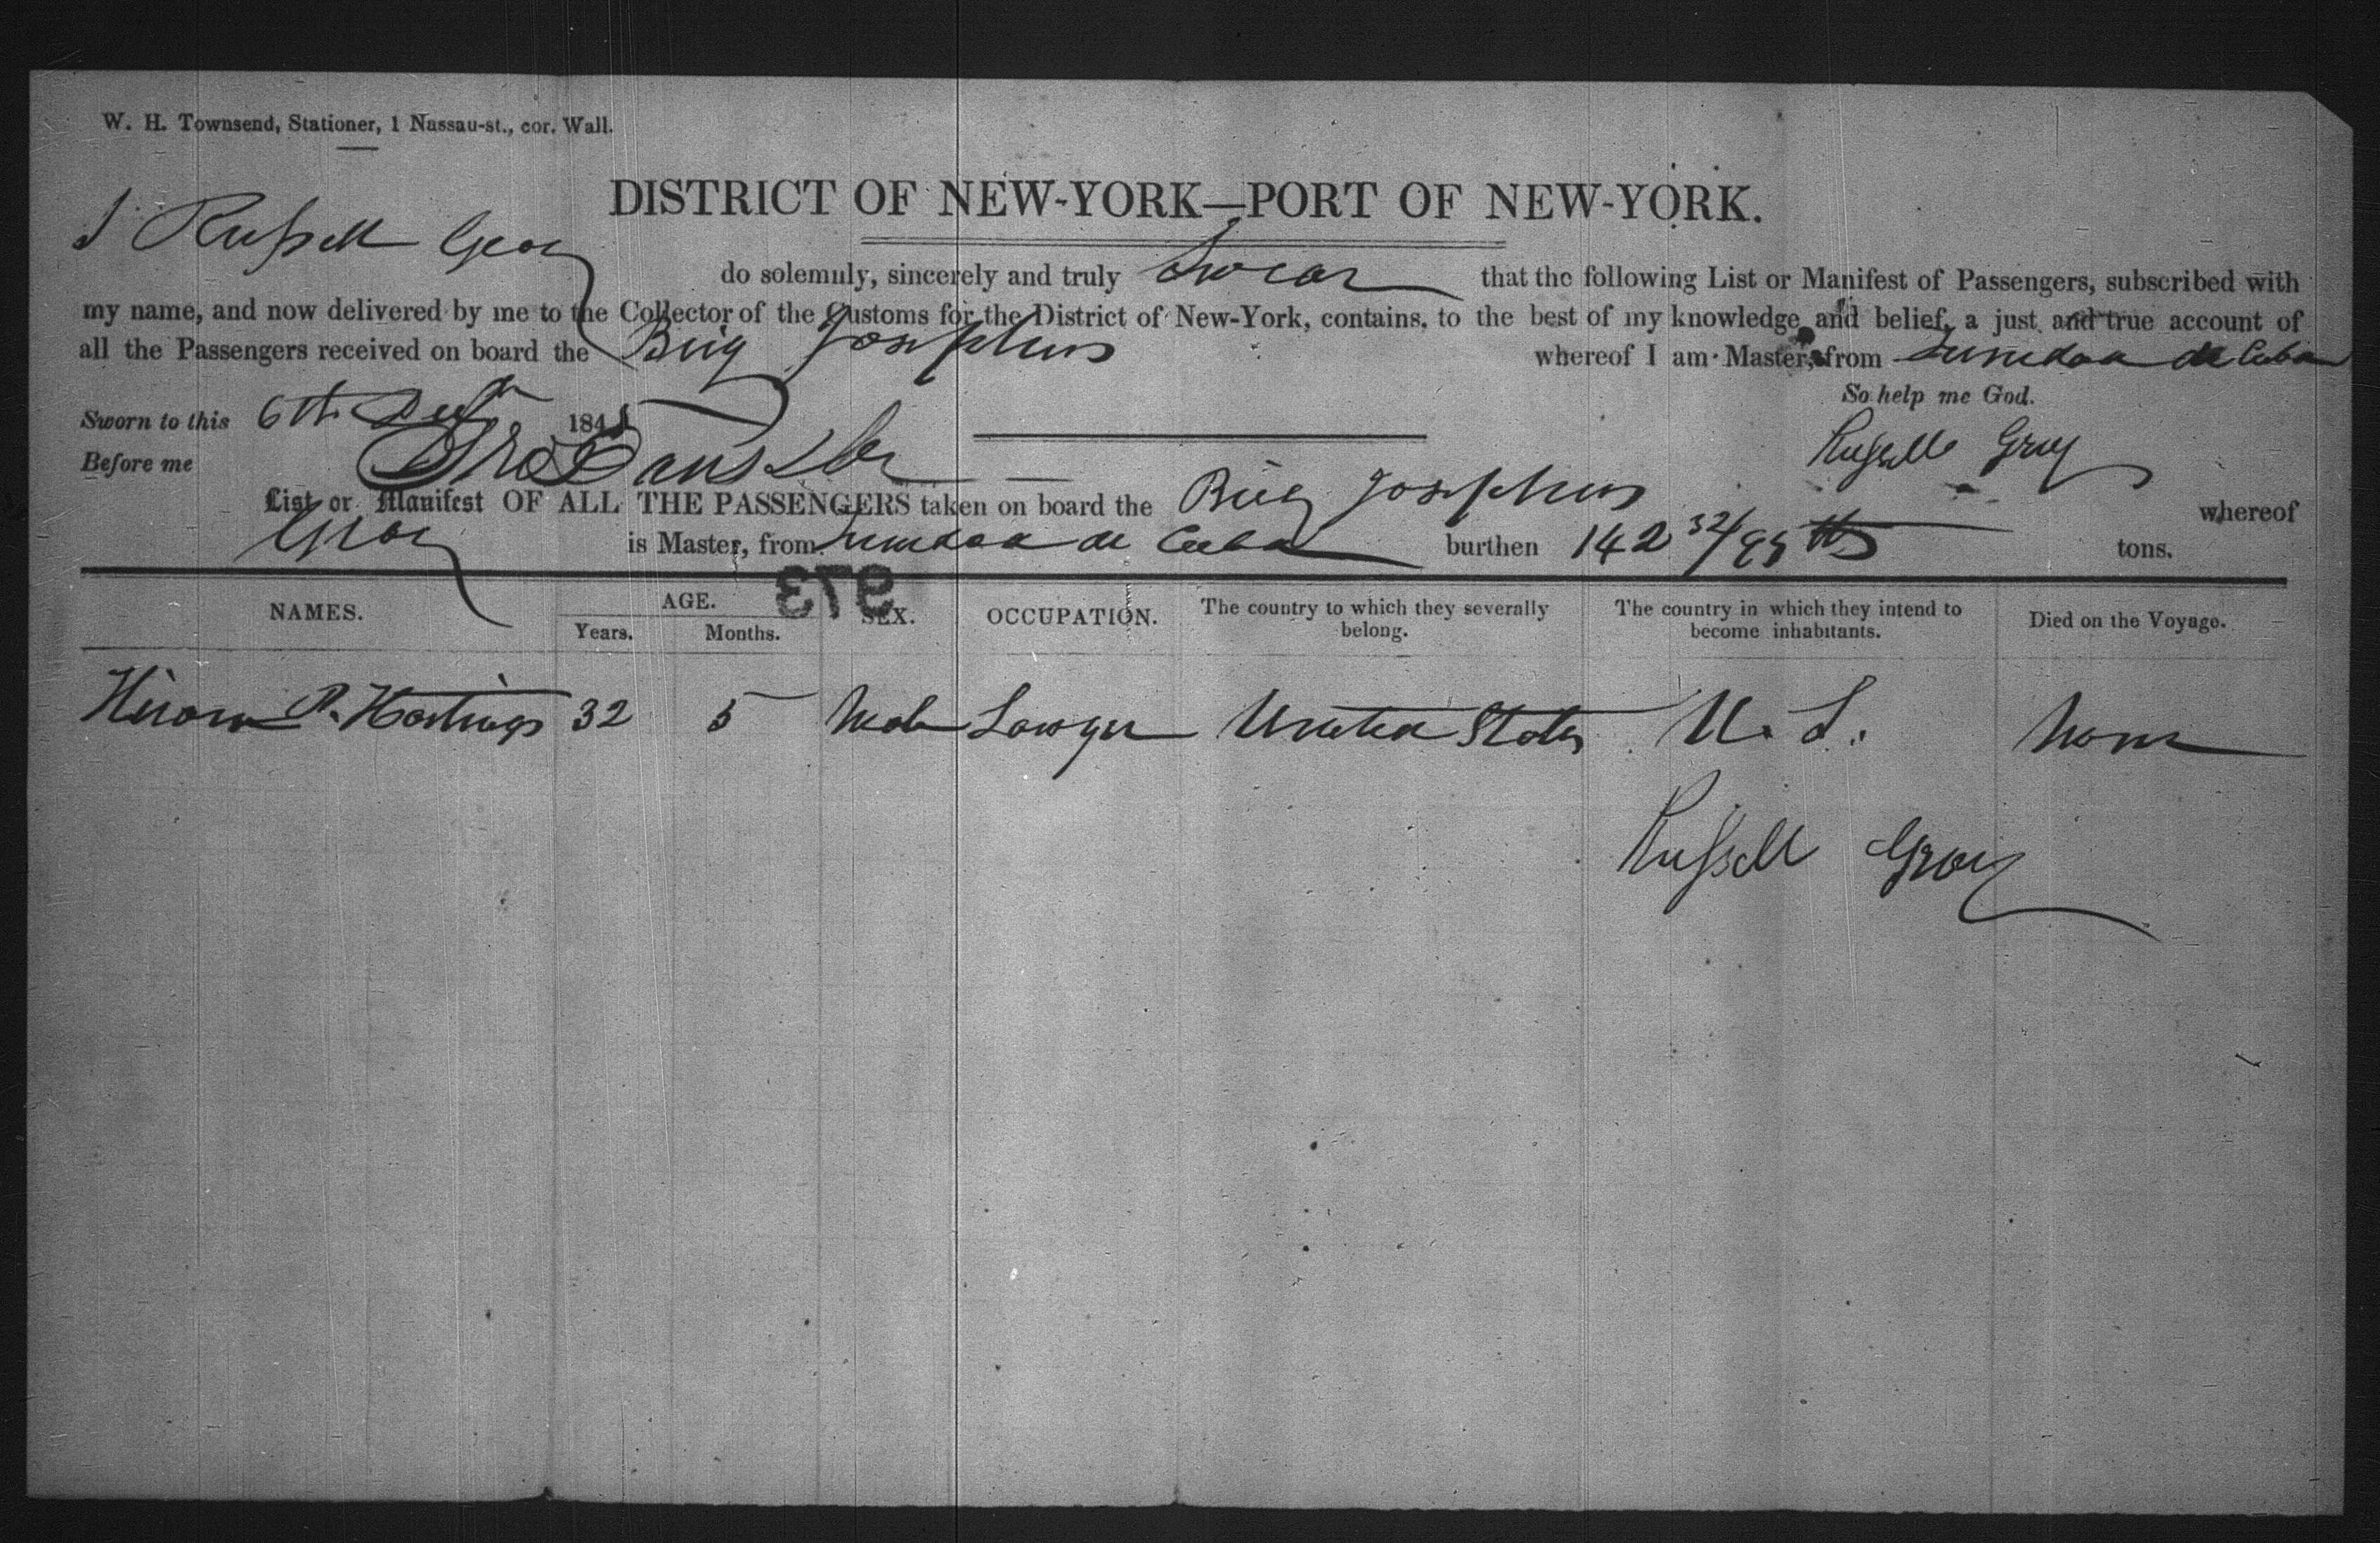 W. H. Townsend, Stationer, 1 Nassau-st., cor. Wall.
DISTRICT OF NEW-YORK—PORT OF NEW-YORK.
I Russell Gray do solemnly, sincerely and truly Swear that the following List or Manifest of Passengers, subscribed with
my name, and now delivered by me to the Collector of the Customs for the District of New-York, contains, to the best of my knowledge and belief, a just and true account of
all the Passengers received on board the Brig Josephus whereof I am Master, from de Cuba
So help me God.
Sworn to this 6th 184
Russell Gray
Before me
List or Manifest OF ALL THE PASSENGERS taken on board the Brig Josephus whereof
Gray is Master, from de Cuba burthen 142 32/95ths tons.
973
NAMES. AGE. SEX. OCCUPATION. The country to which they severally belong. The country in which they intend to become inhabitants. Died on the Voyage.
Years. Months.
Hiram P. Hastings 32 5 Male Lawyer United States U. S. None
Russell Gray